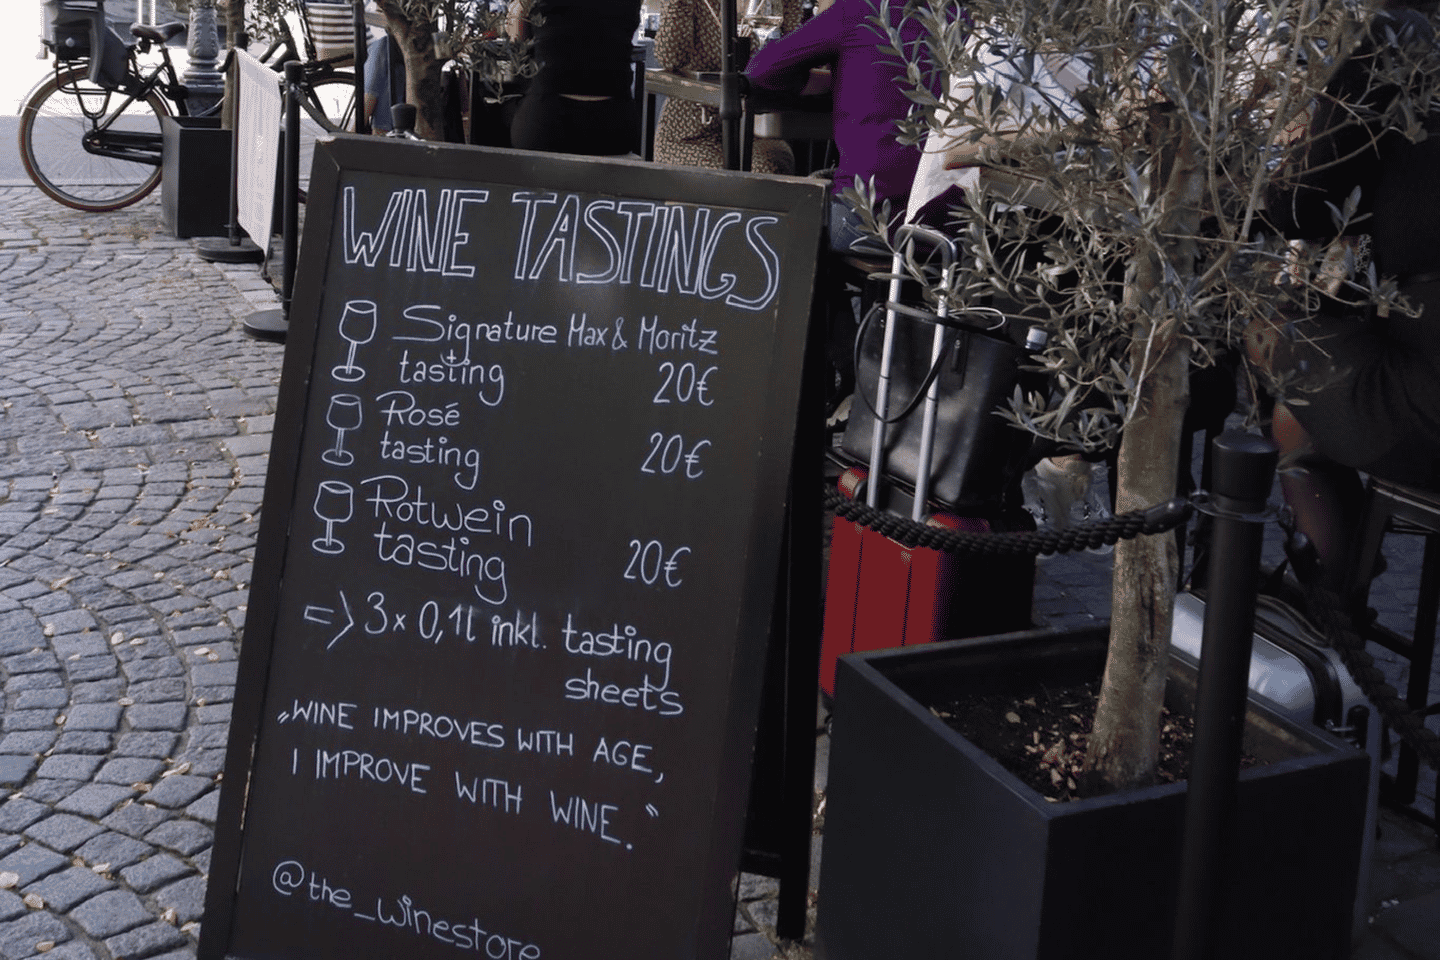 WINE TASTINGS
Signature Max & Moritz
tasting 20€
Rosé
tasting 20€
Rotwein
tasting 20€
=> 3x 0,1l inkl. tasting
sheets
„WINE IMPROVES WITH AGE,
I IMPROVE WITH WINE.“
@the_winestore